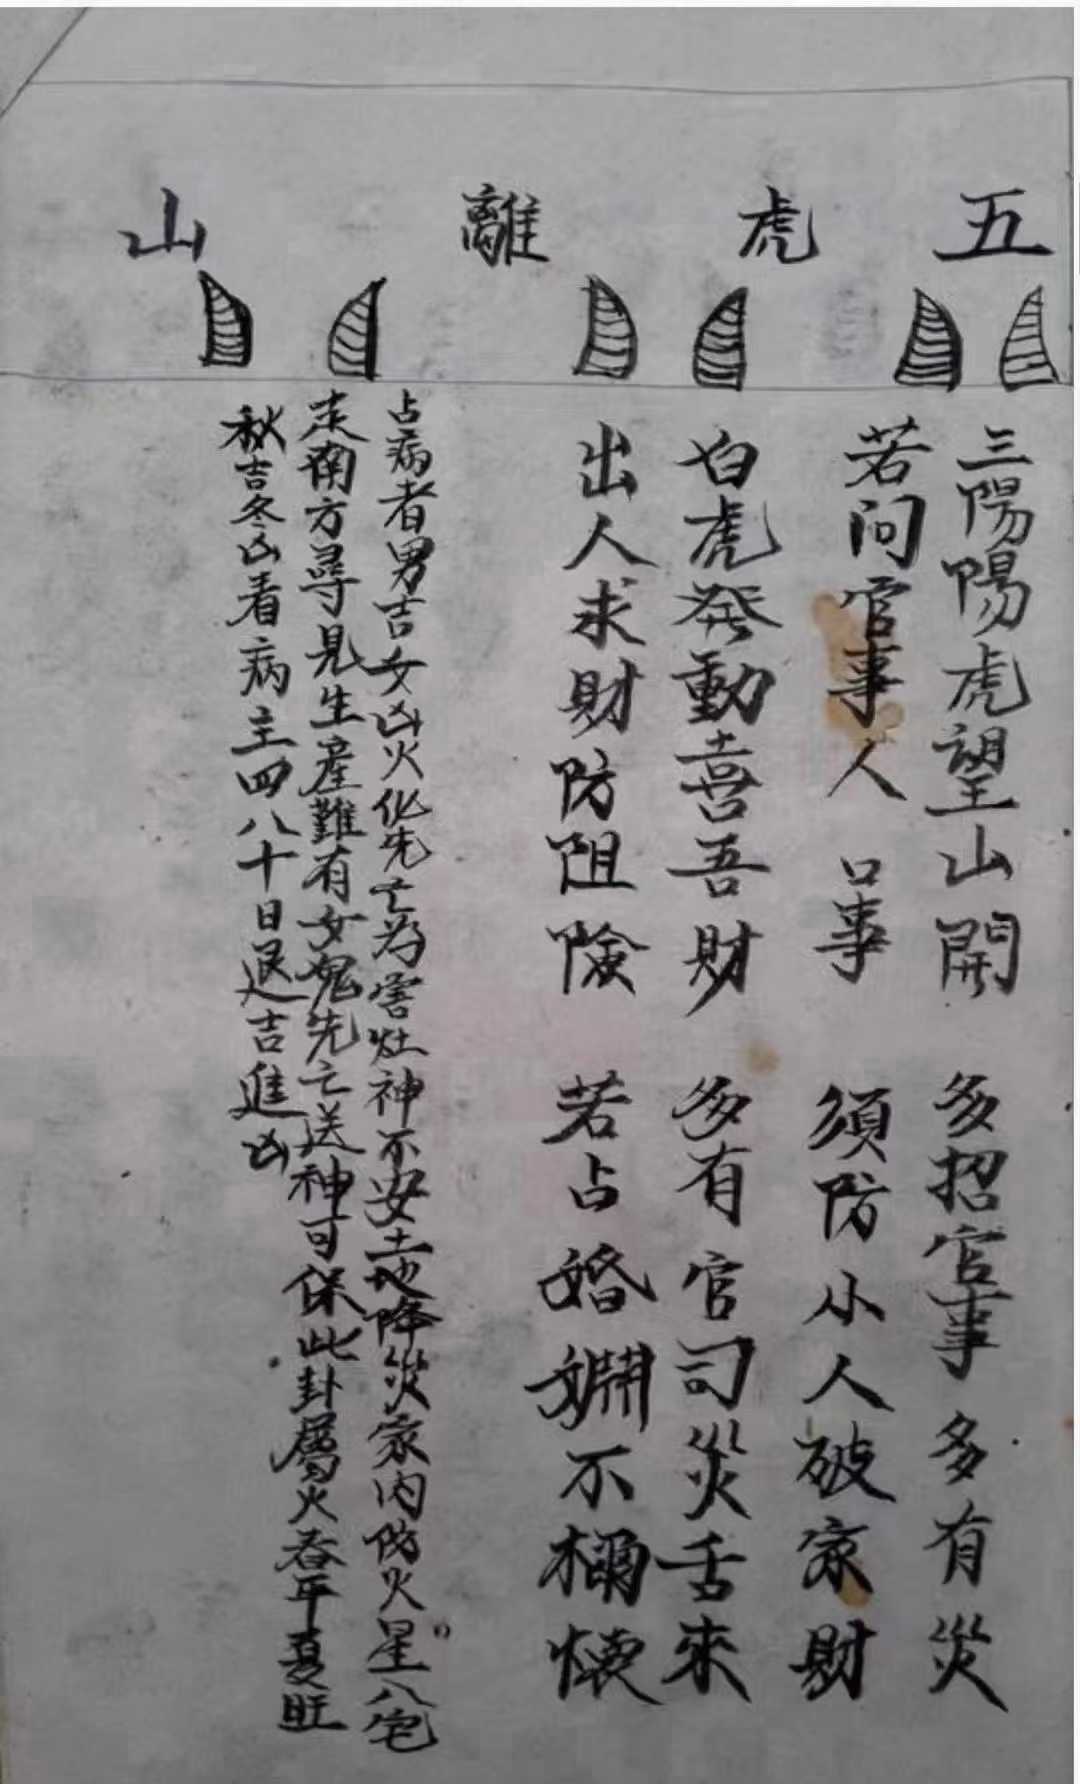 五虎離山
三陽陽虎望山開 多招官事多有災
若問官事人口事 須防小人破家財
白虎發動喜吾財 多有官司災舌來
出人求財防阻險 若占婚姻不稱懷
占病者男吉女凶火化先亡為害灶神不安土地降災家内防火星入宅
走南方尋見生産難有女鬼先亡送神可保此卦屬火春平夏旺
秋吉冬凶看病主四八十日退吉進凶